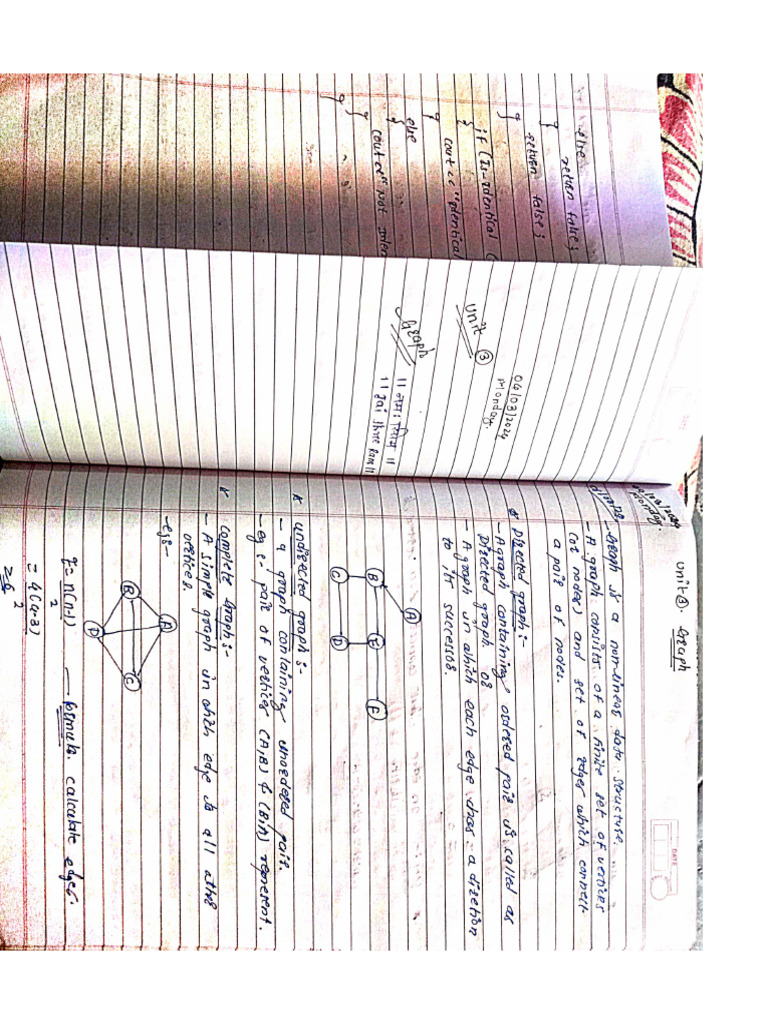 else
return false;
}
return false;
}
if (Is-identical (
{
cout << "identical
}
else
{
cout << "not iden
}
}
04/03/2024
Monday.
Unit ③
Graph
Unit ③. Graph
DATE
04/03/2024
Monday.
- Graph is a non-linear data structure.
- A graph consists of a finite set of vertices
(or nodes) and set of edges which connect
a pair of nodes.
Directed graph :-
- A graph containing ordered pair is called as
Directed graph or
- A graph in which each edge has a direction
to its successor.
A
B E F
C D
* undirected graph :-
- a graph containing unordered pair.
- eg :- pair of vertices (A,B) & (B,A) represent.
complete Graph :-
- A simple graph in which edge is all other
vertices.
- eg :-
A
B C
D
= n(n-1) — formula calculate edges.
2
= 4(4-3)
2
= 6